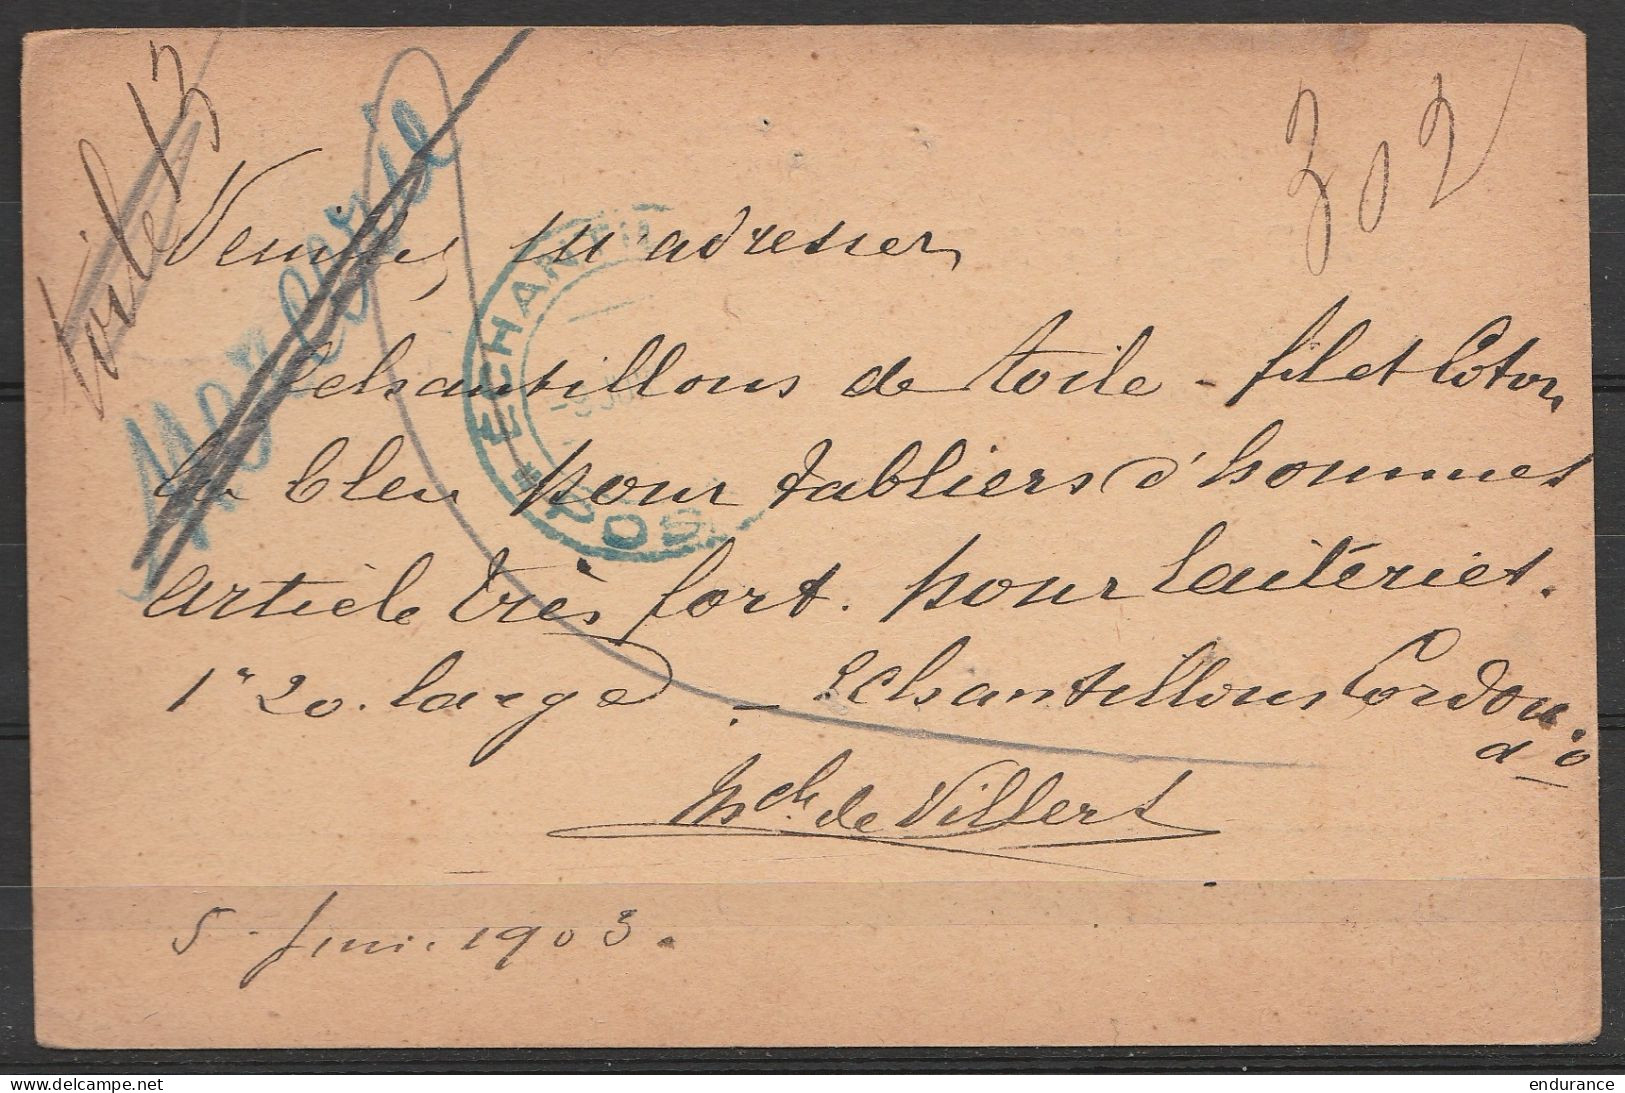 Toile 13
302
Veuillez m'adresser
Echantillons de toile - fil et Coton
bleu pour tabliers d'hommes
Article très fort. pour laiteries.
1m 20. large - Echantillons Cordon
d°
Mch. de Villers
5 - Juin. 1903.
* ÉCHANTI
POS
delcampe.net
endurance